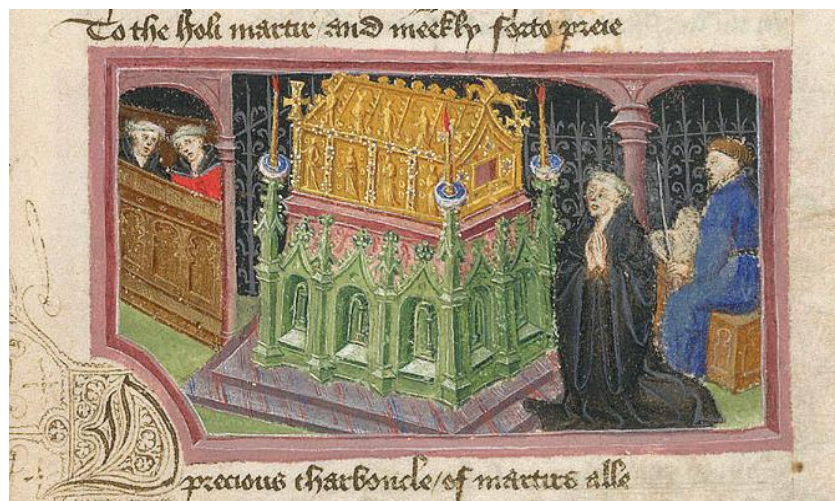 To the holi martir and meekly forto preie
O precious charboncle / of martirs alle